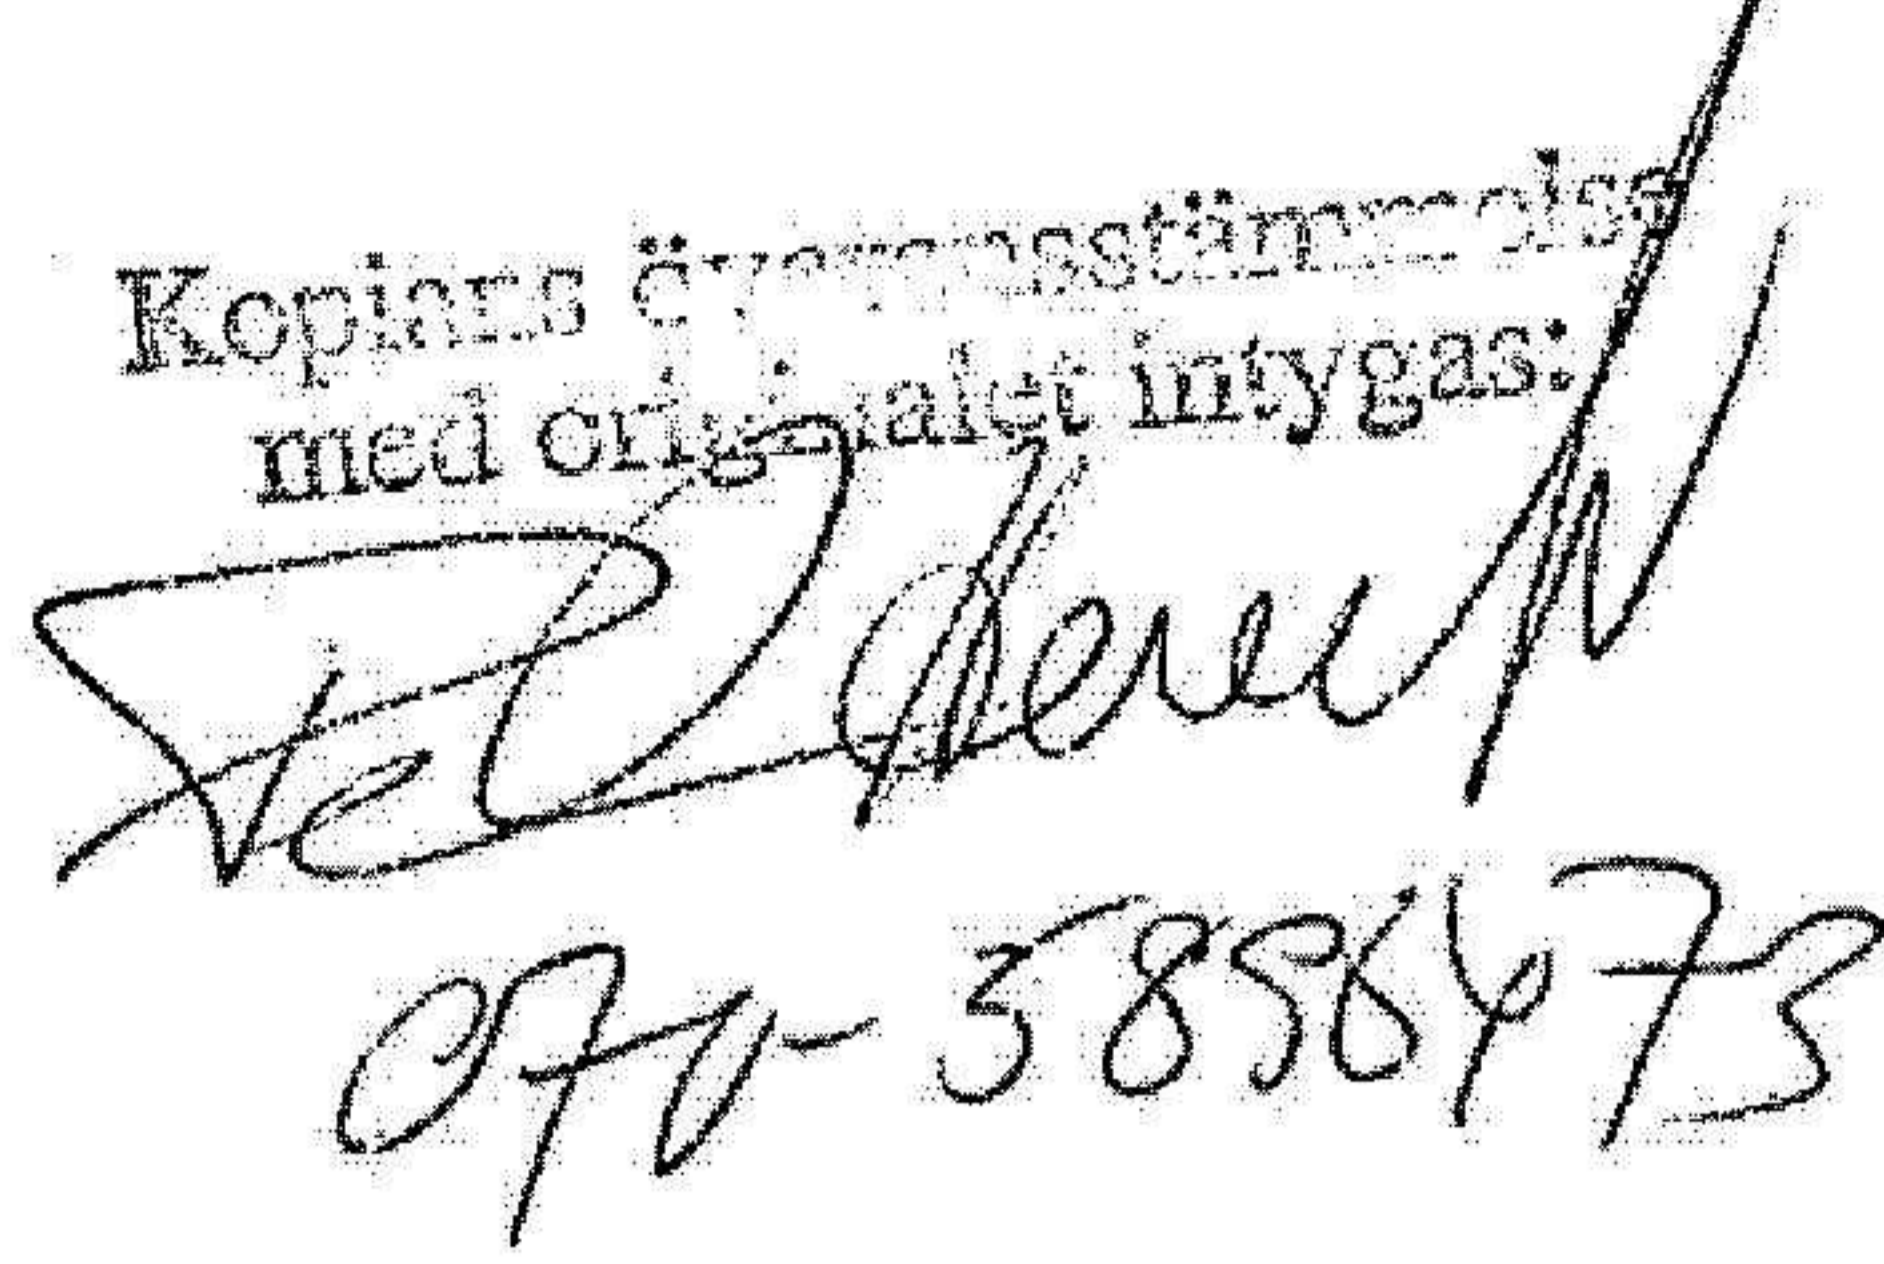 Kopians överensstämmelse
med originalet intygas:
070-5858473